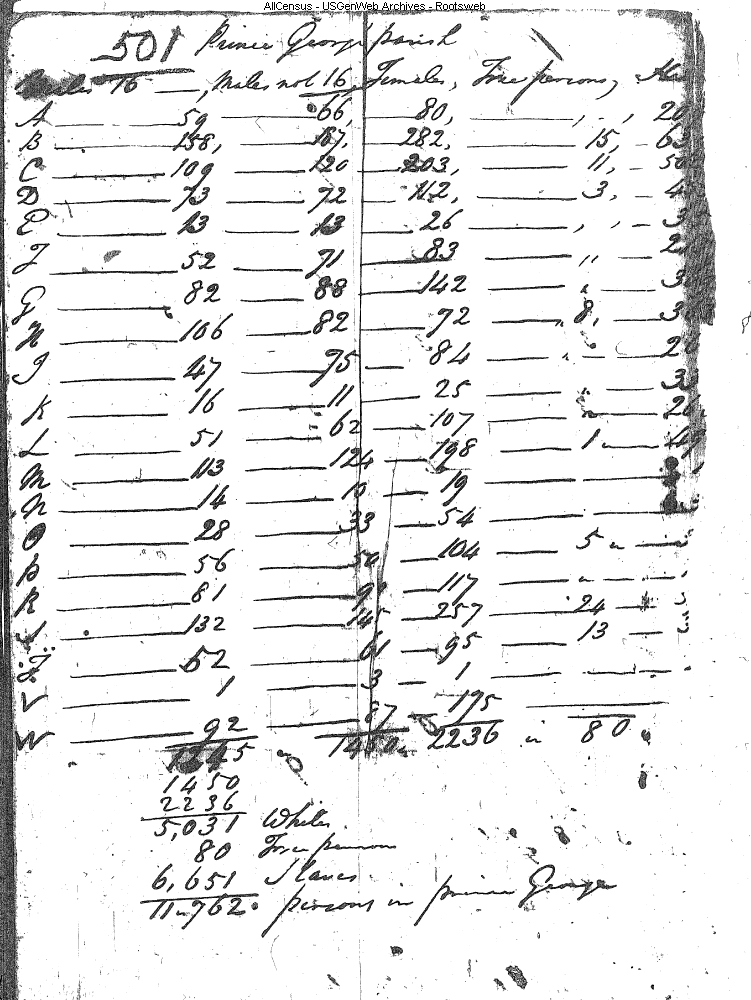 AllCensus - USGenWeb Archives - Rootsweb
501 Prince George parish
Males 16 —, Males not 16, Females, Free persons,
A — 59 — 66, — 80, — , - ,
B — 158, — 167, — 282, — 15, —
C — 109 — 120 — 203, — 11, —
D — 73 — 72 — 112, — 3, —
E — 13 — 13 — 26 — , , —
F — 52 — 71 — 83 — ,,
G — 82 — 88 — 142 — " —
H — 106 — 82 — 72 — " 8, —
I — 47 — 75 — 84 — " —
K — 16 — 11 — 25 — " —
L — 51 — 62 — 107 — " —
M — 113 — 124 — 198 — 1 " — 49
N — 14 — 10 — 19 —
O — 28 — 33 — 54 —
P — 56 — 50 — 104 — 5 " —
R — 81 — — 117 — " —
S — 132 — 145 — 257 — 24 —
T — 52 — 61 — 95 — 13 —
V — 1 — 3 — 1 —
W — 92 — 87 — 175 —
1345 1450 " 2236 " 80 "
1450
2236
5,031 Whites
80 Free persons
6,651 Slaves
11"762. persons in prince George